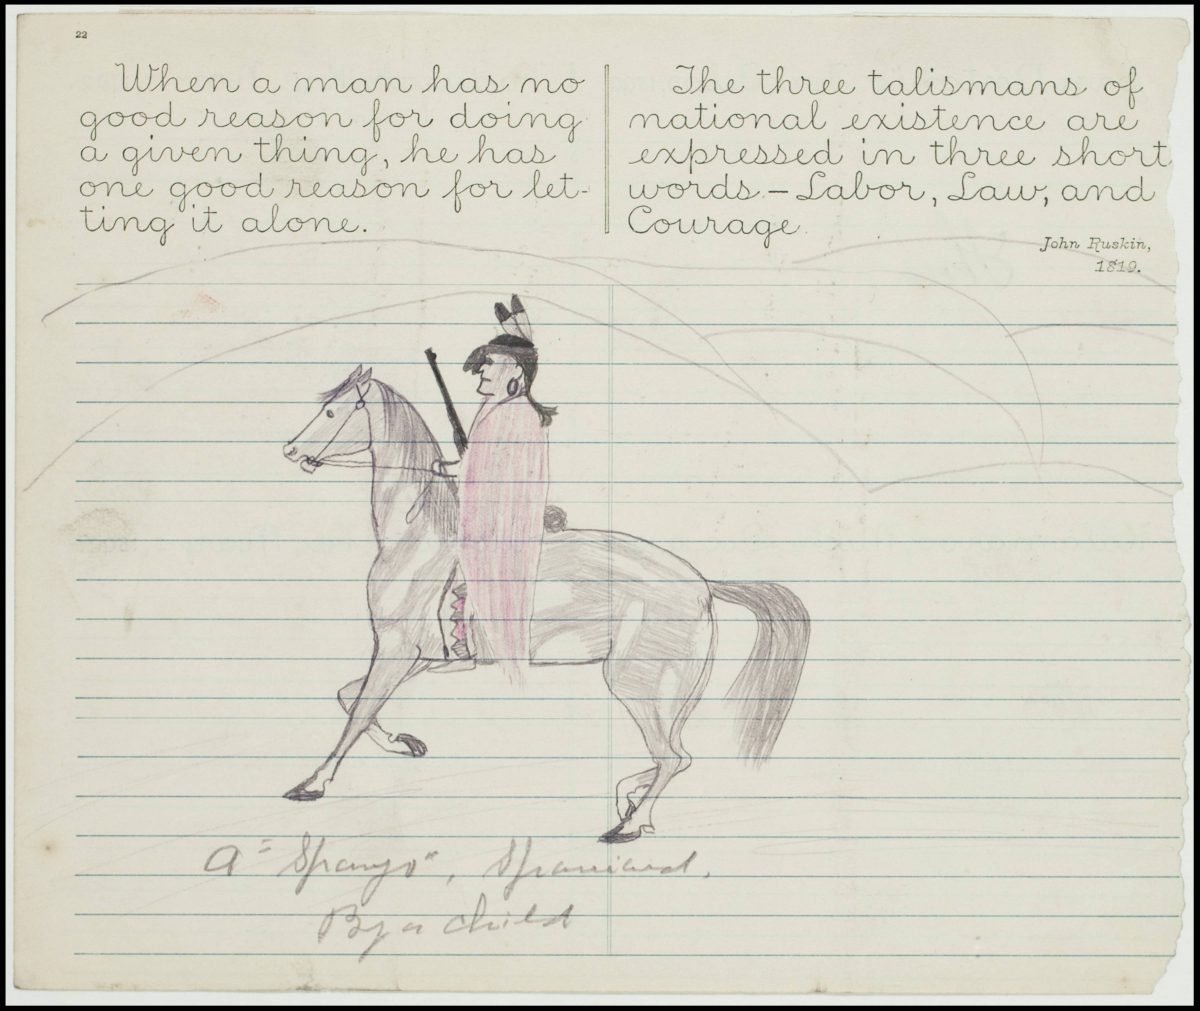 22
When a man has no
good reason for doing
a given thing, he has
one good reason for let-
ting it alone.
The three talismans of
national existence are
expressed in three short
words.—Labor, Law, and
Courage.
John Ruskin,
1819.
A "Spanyo", Spaniard.
By a child